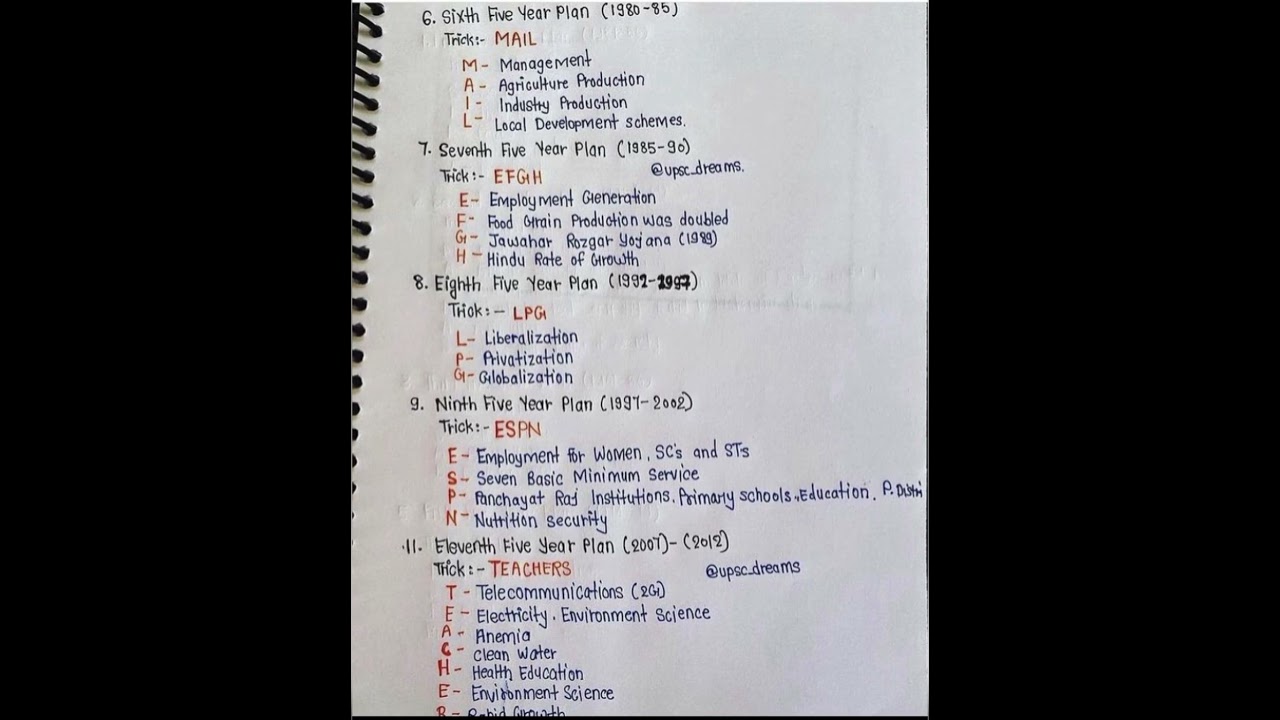 6. Sixth Five Year Plan (1980-85)
Trick:- MAIL
M- Management
A- Agriculture Production
I- Industry Production
L- Local Development schemes.
7. Seventh Five Year Plan (1985-90)
@upsc_dreams.
Trick:- EFGH
E- Employment Generation
F- Food Grain Production was doubled
G- Jawahar Rozgar Yojana (1989)
H- Hindu Rate of Growth
8. Eighth Five Year Plan (1992-1997)
Trick:- LPG
L- Liberalization
P- Privatization
G- Globalization
9. Ninth Five Year Plan (1997-2002)
Trick:- ESPN
E- Employment for Women, SC's and STs
S- Seven Basic Minimum Service
P- Panchayat Raj Institutions, Primary schools, Education, P. Distri
N- Nutrition security
11. Eleventh Five Year Plan (2007)-(2012)
Trick:- TEACHERS
@upsc_dreams
T- Telecommunications (2G)
E- Electricity. Environment Science
A- Anemia
C- Clean Water
H- Health Education
E- Environment Science
R- Rapid Growth